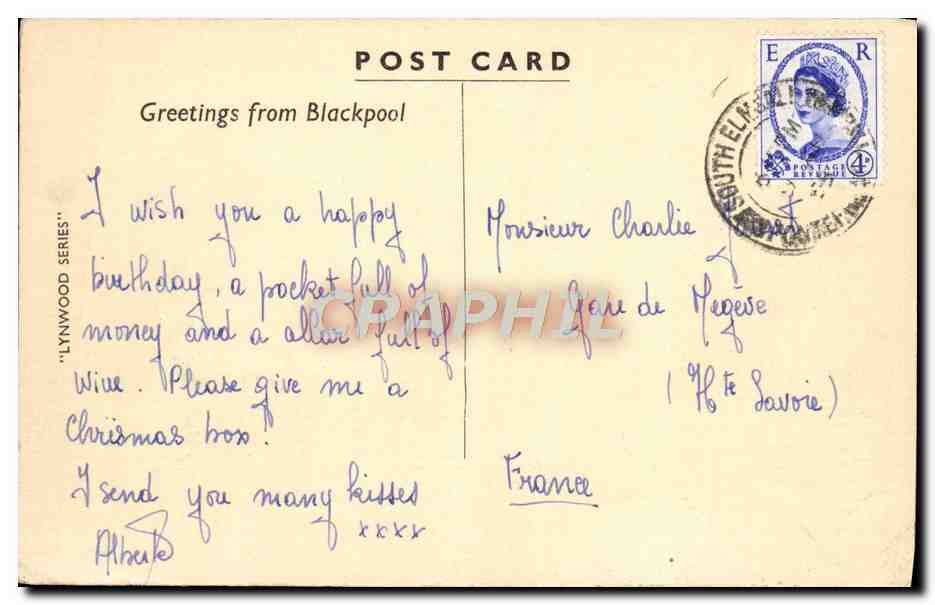 POST CARD
Greetings from Blackpool
"LYNWOOD SERIES"
I wish you a happy
birthday, a pocket full of
money and a allar full of
wine. Please give me a
Chrismas box!
I send you many kisses
xxxx
E R
POSTAGE
REVENUE
4D
SOUTH ELMSALL
Monsieur Charlie
Gare de Megève
(Hte Savoie)
France
CPAPHIL